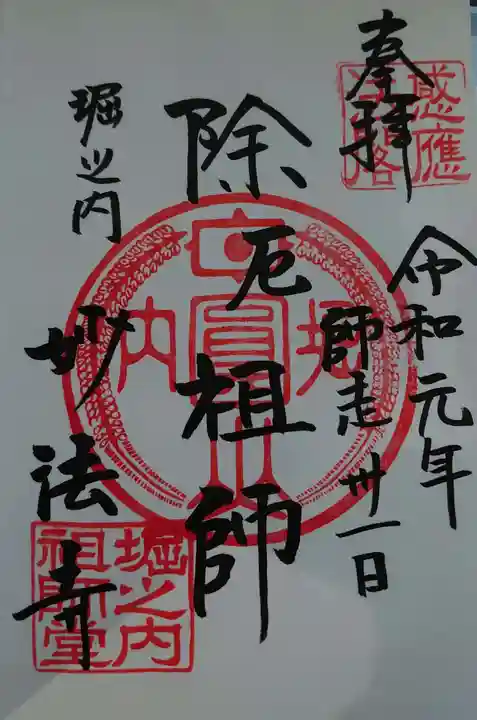 奉拝
令和元年
師走卅一日
除厄祖師
堀之内
妙法寺
感應
堀
内
堀之内
祖師堂